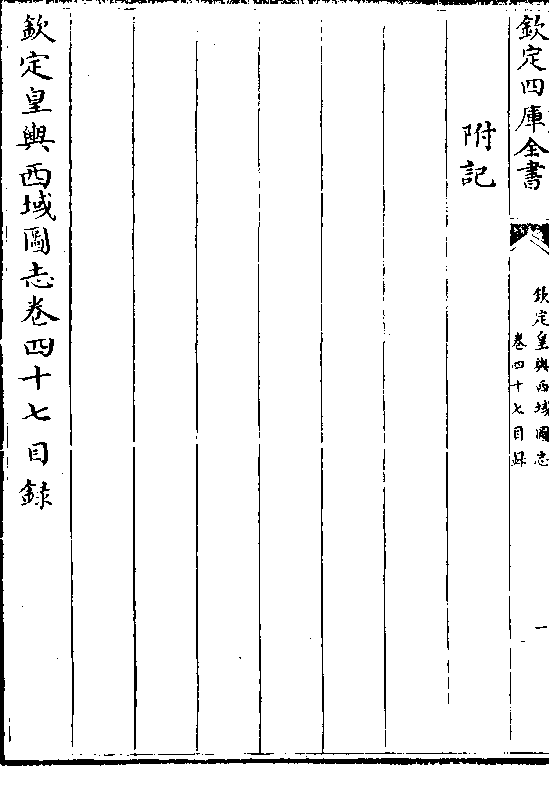 欽定四庫全書
欽定皇輿西域圖志
卷四十七目録
一
附記
欽定皇輿西域圖志卷四十七目録